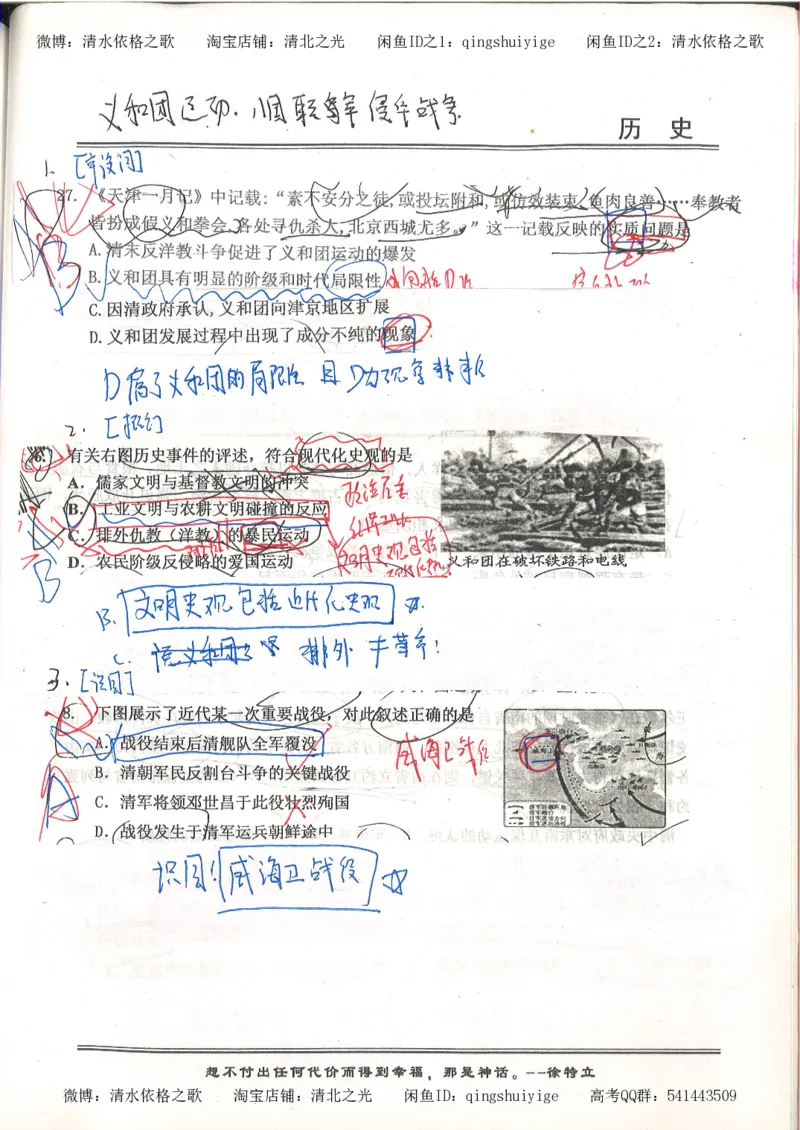 微博：清水依格之歌 淘宝店铺：清北之光 闲鱼ID之1：qingshuiyige 闲鱼ID之2：清水依格之歌
义和团运动.八国联军侵华战争
历 史
1. [审设问]
27. 《天津一月记》中记载:“素不安分之徒,或投坛附和,或仿效装束,鱼肉良善……奉教者
皆扮成假义和拳会,各处寻仇杀人,北京西城尤多。”这一记载反映的实质问题是
A.清末反洋教斗争促进了义和团运动的爆发
B.义和团具有明显的阶级和时代局限性
C.因清政府承认,义和团向津京地区扩展
D.义和团发展过程中出现了成分不纯的现象
D属于义和团的局限性 且D为现象非本质
2.
有关右图历史事件的评述，符合现代化史观的是
A．儒家文明与基督教文明的冲突
B．工业文明与农耕文明碰撞的反应
C．排外仇教（洋教）的暴民运动
D．农民阶级反侵略的爱国运动
义和团在破坏铁路和电线
B. 文明史观包括近代化史观
C. 排外
3. [识图]
8. 下图展示了近代某一次重要战役，对此叙述正确的是
A．战役结束后清舰队全军覆没
威海卫战役
B．清朝军民反割台斗争的关键战役
C．清军将领邓世昌于此役壮烈殉国
D．战役发生于清军运兵朝鲜途中
A
识图! 威海卫战役
想不付出任何代价而得到幸福，那是神话。--徐特立
微博：清水依格之歌 淘宝店铺：清北之光 闲鱼ID：qingshuiyige 高考QQ群：541443509